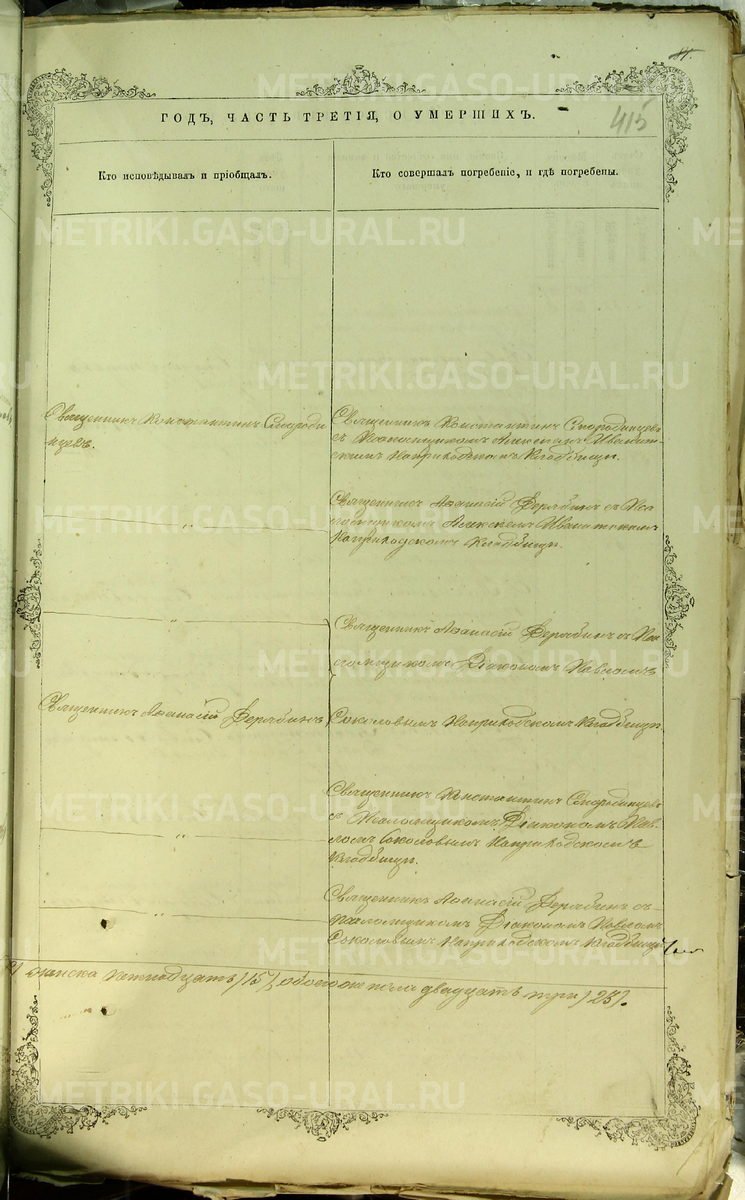 415
ГОДЪ, ЧАСТЬ ТРЕТІЯ, О УМЕРШИХЪ.
Кто исповѣдывалъ и пріобщалъ.
Кто совершалъ погребеніе, и гдѣ погребены.
Священникъ Константинъ Смороди
нцевъ.
Священникъ Константинъ Смородинцевъ
съ Псаломщикомъ Алексѣемъ
на приходскомъ кладбищѣ.
Священникъ Аѳанасій Дерябинъ съ Пса
ломщикомъ Алексѣемъ
на приходскомъ кладбищѣ.
Священникъ Аѳанасій Дерябинъ съ Пса
ломщикомъ Діакономъ Павломъ
Священникъ Аѳанасій Дерябинъ
Соколовымъ на приходскомъ кладбищѣ.
Священникъ Константинъ Смородинцевъ
съ Псаломщикомъ Діакономъ Пав
ломъ Соколовымъ на приходскомъ
кладбищѣ.
Священникъ Аѳанасій Дерябинъ съ
Псаломщикомъ Діакономъ Павломъ
Соколовымъ на приходскомъ кладбищѣ
женска пятнадцать /15/, обоего пола двадцать три /23/.
METRIKI.GASO-URAL.RU